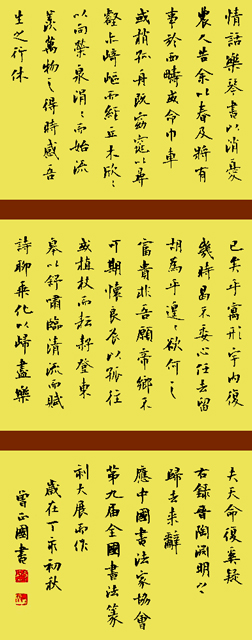 情話樂琴書以消憂
農人告余以春及將有
事於西疇或命巾車
或棹孤舟既窈窕以尋
壑亦崎嶇而經丘木欣〻
以向榮泉涓〻而始流
羨萬物之得時感吾
生之行休
已矣乎寓形宇內復
幾時曷不委心任去留
胡為乎遑〻欲何之
富貴非吾願帝鄉不
可期懷良辰以孤往
或植杖而耘耔登東
皋以舒嘯臨清流而賦
詩聊乘化以歸盡樂
夫天命復奚疑
右錄晉陶淵明之
歸去來辭
應中國書法家協會
第九屆全國書法篆
刻大展而作
歲在丁亥初秋
曾正國書